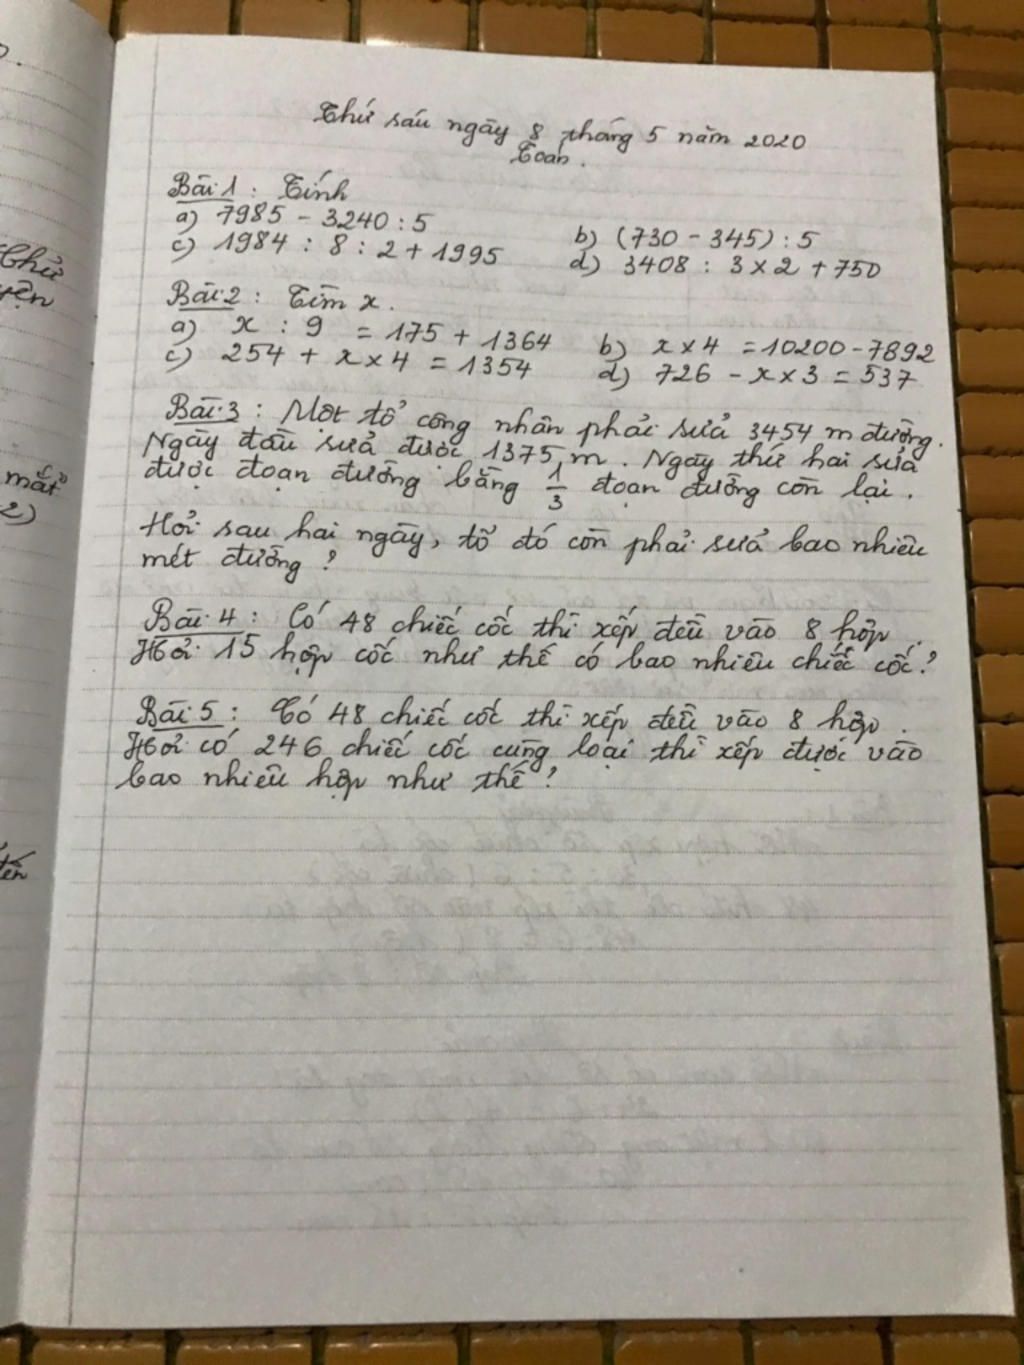 Thứ sáu ngày 8 tháng 5 năm 2020
Toán.
Bài 1 : Tính
a) 7985 - 3240 : 5
b) (730 - 345) : 5
c) 1984 : 8 : 2 + 1995
d) 3408 : 3 x 2 + 750
Bài 2 : Tìm x.
a) x : 9 = 175 + 1364
b) x x 4 = 10200 - 7892
c) 254 + x x 4 = 1354
d) 726 - x x 3 = 537
Bài 3 : Một tổ công nhân phải sửa 3454 m đường.
Ngày đầu sửa được 1375 m. Ngày thứ hai sửa
được đoạn đường bằng 1/3 đoạn đường còn lại.
Hỏi sau hai ngày, tổ đó còn phải sửa bao nhiêu
mét đường ?
Bài 4 : Có 48 chiếc cốc thì xếp đều vào 8 hộp.
Hỏi 15 hộp cốc như thế có bao nhiêu chiếc cốc ?
Bài 5 : Có 48 chiếc cốc thì xếp đều vào 8 hộp.
Hỏi có 246 chiếc cốc cùng loại thì xếp được vào
bao nhiêu hộp như thế ?